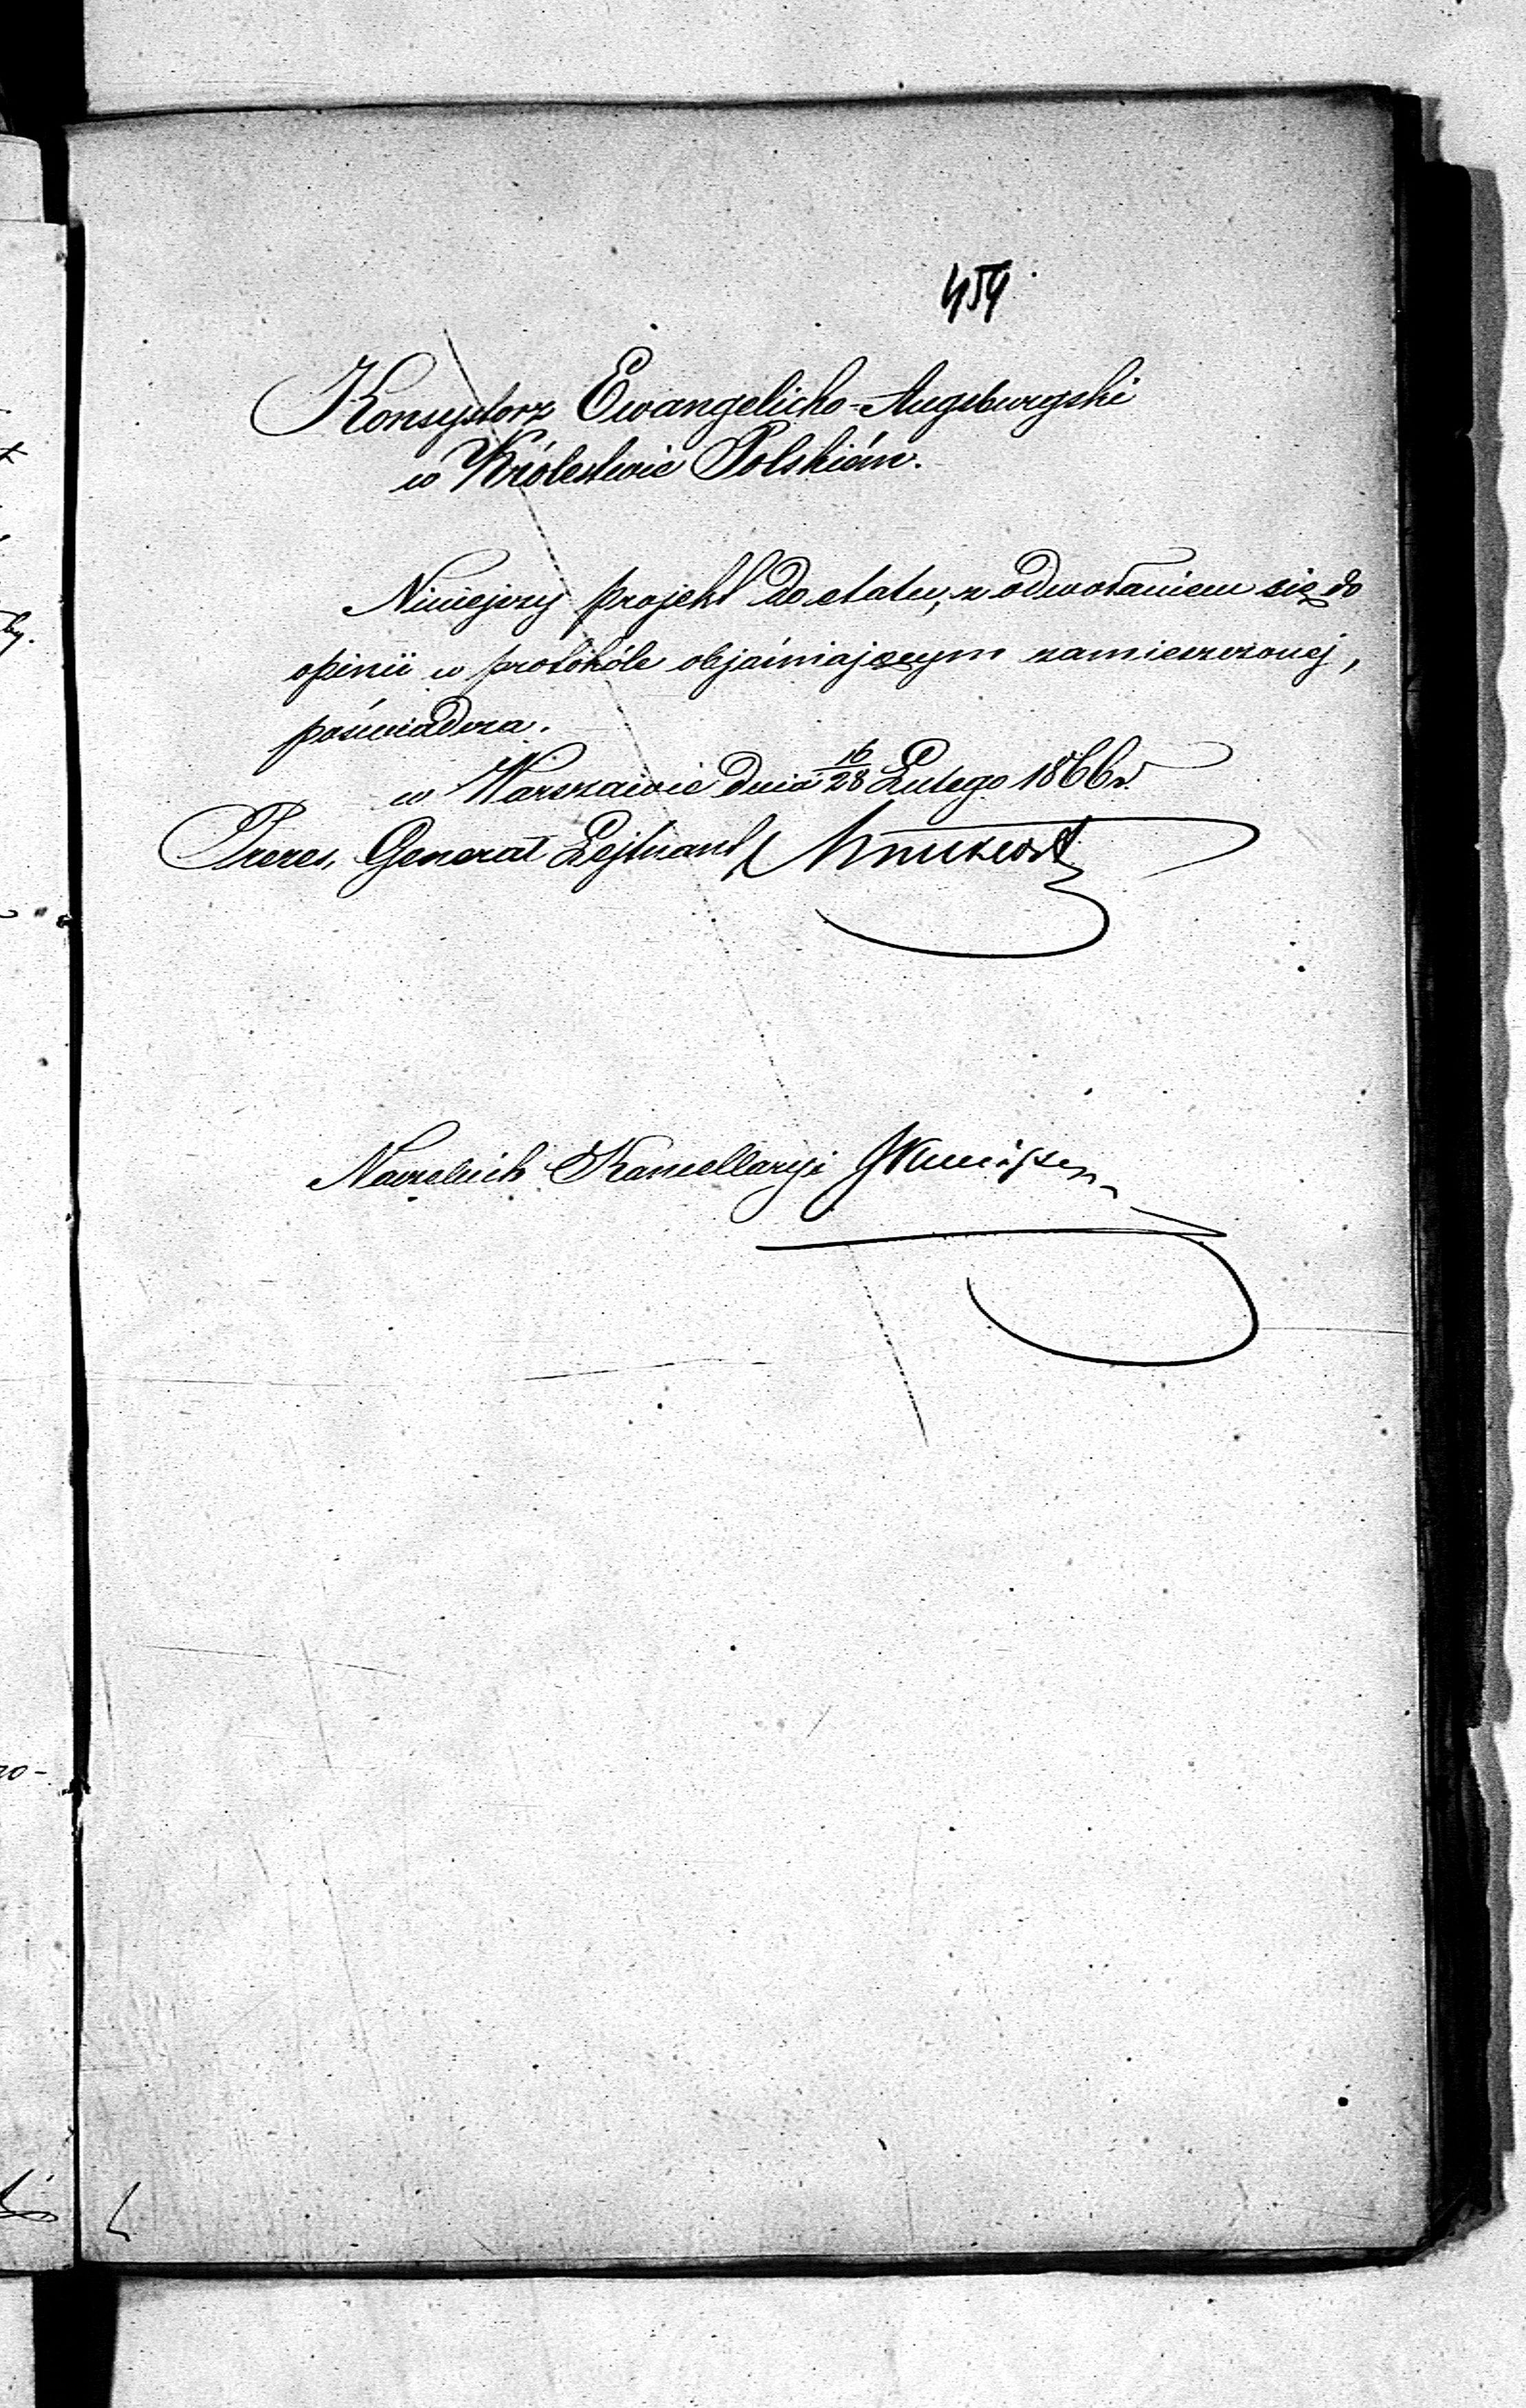 459
Konsystorz Ewangelicko-Augsburgski
w Królestwie Polskiém.
Niniejszy projekt do etatu, z odwołaniem się do
opinii w protokóle objaśniającym zamieszczonej,
poświadcza.
w Warszawie dnia 16/28 Lutego 1866 r.
Prezes, Generał Lejtnant
Naczelnik Kancellaryi